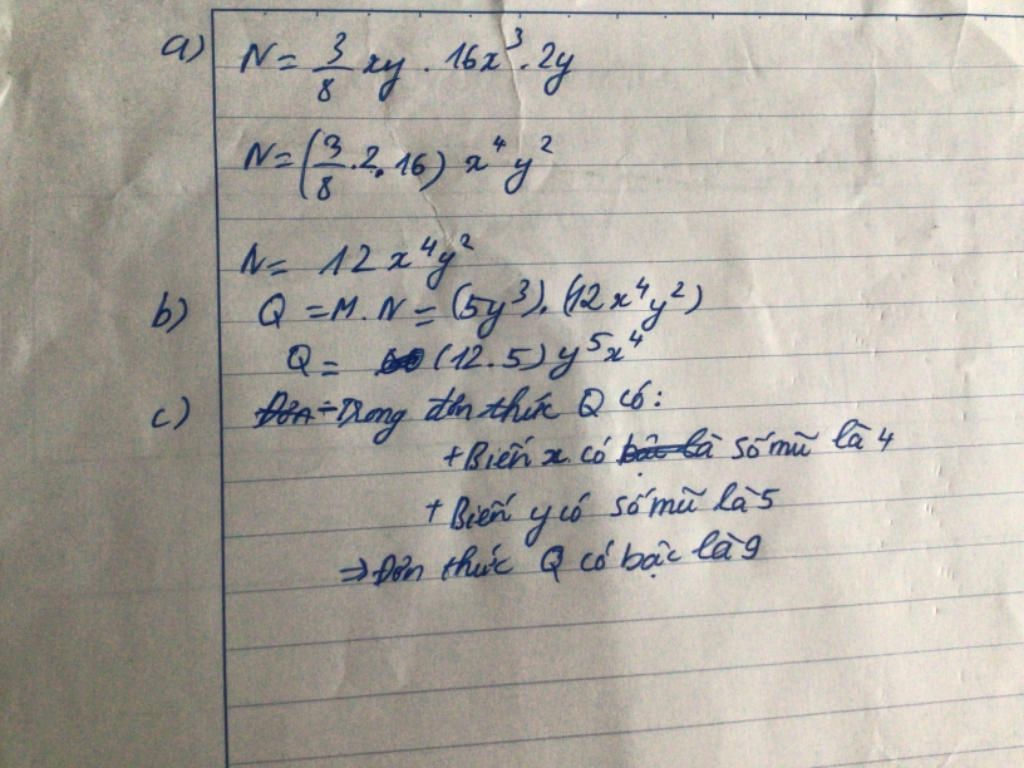 a) N = 3/8 xy . 16x³ . 2y
N = (3/8 . 2 . 16) x⁴y²
N = 12x⁴y²
b) Q = M . N = (5y³) . (12x⁴y²)
Q = (12 . 5) y⁵x⁴
c) Đơn - Trong đơn thức Q có:
+ Biến x có bậc là số mũ là 4
+ Biến y có số mũ là 5
⇒ Đơn thức Q có bậc là 9